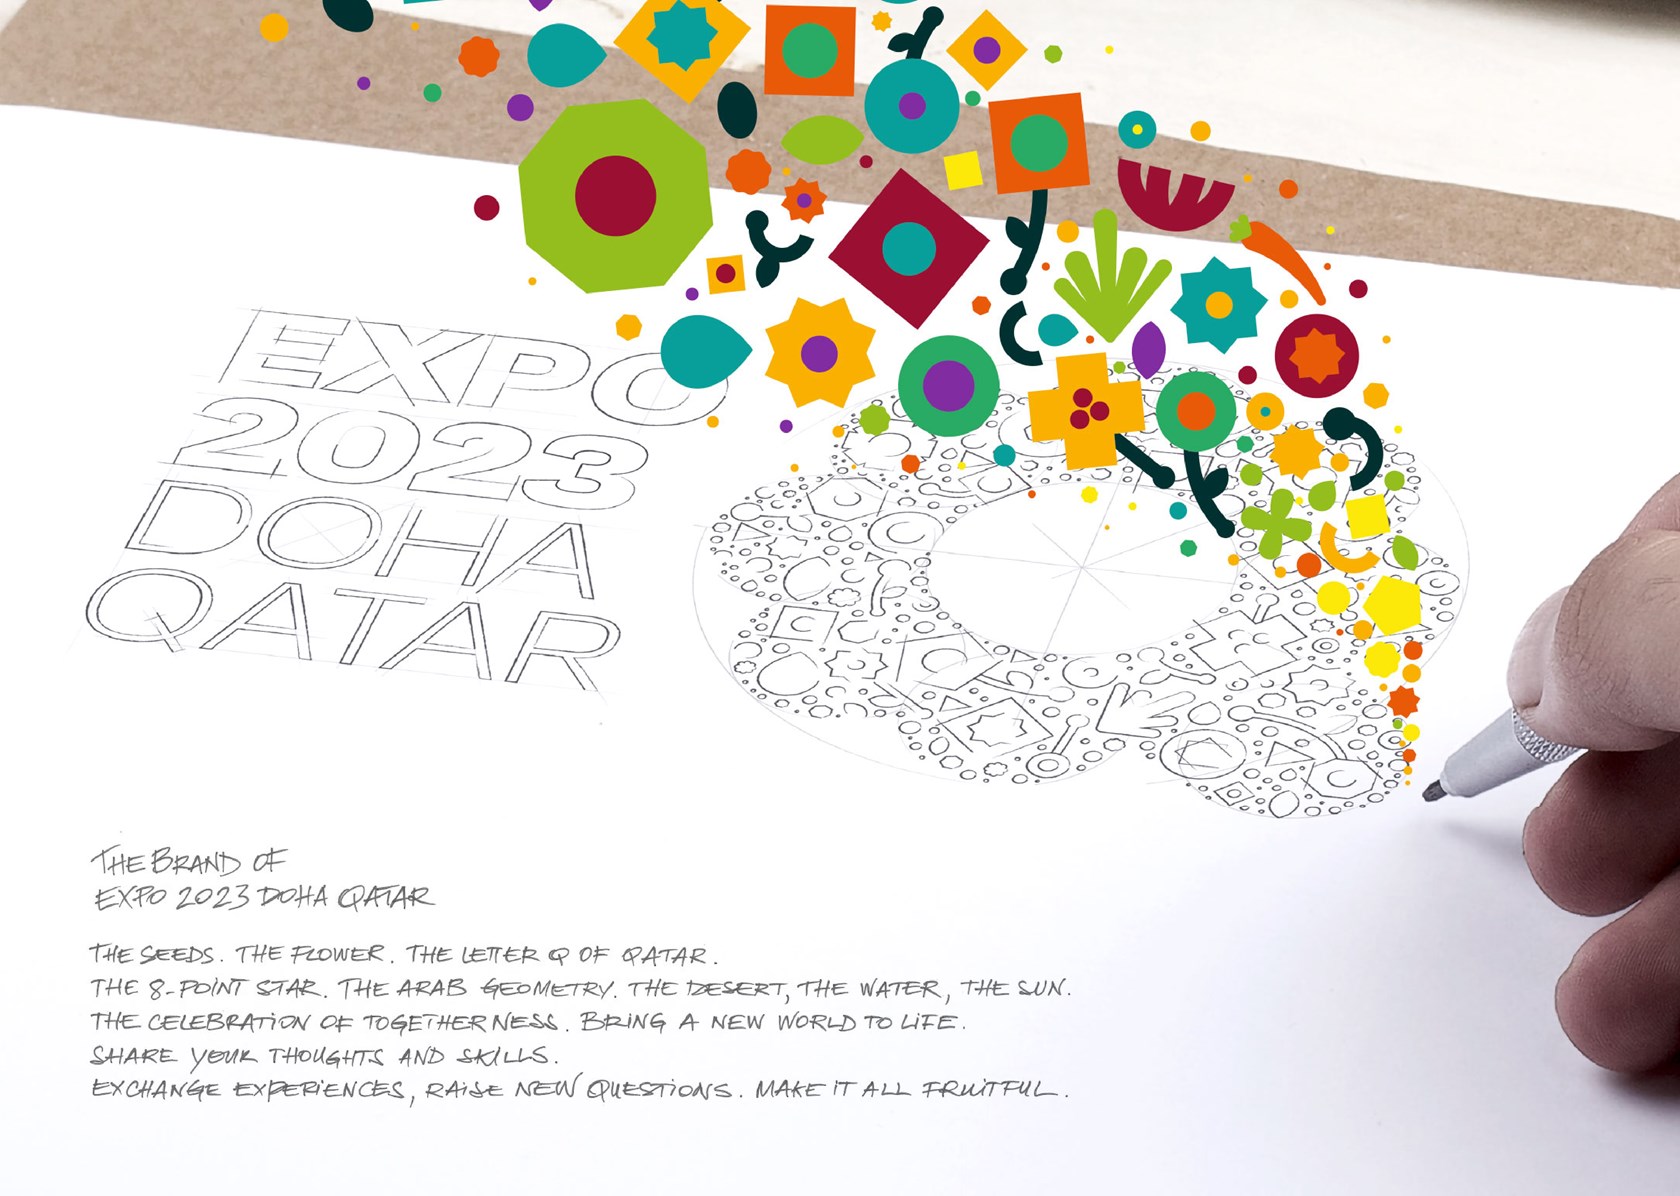 EXPO
2023
DOHA
QATAR
THE BRAND OF
EXPO 2023 DOHA QATAR
THE SEEDS. THE FLOWER. THE LETTER Q OF QATAR.
THE 8-POINT STAR. THE ARAB GEOMETRY. THE DESERT, THE WATER, THE SUN.
THE CELEBRATION OF TOGETHERNESS. BRING A NEW WORLD TO LIFE.
SHARE YOUR THOUGHTS AND SKILLS.
EXCHANGE EXPERIENCES, RAISE NEW QUESTIONS. MAKE IT ALL FRUITFUL.